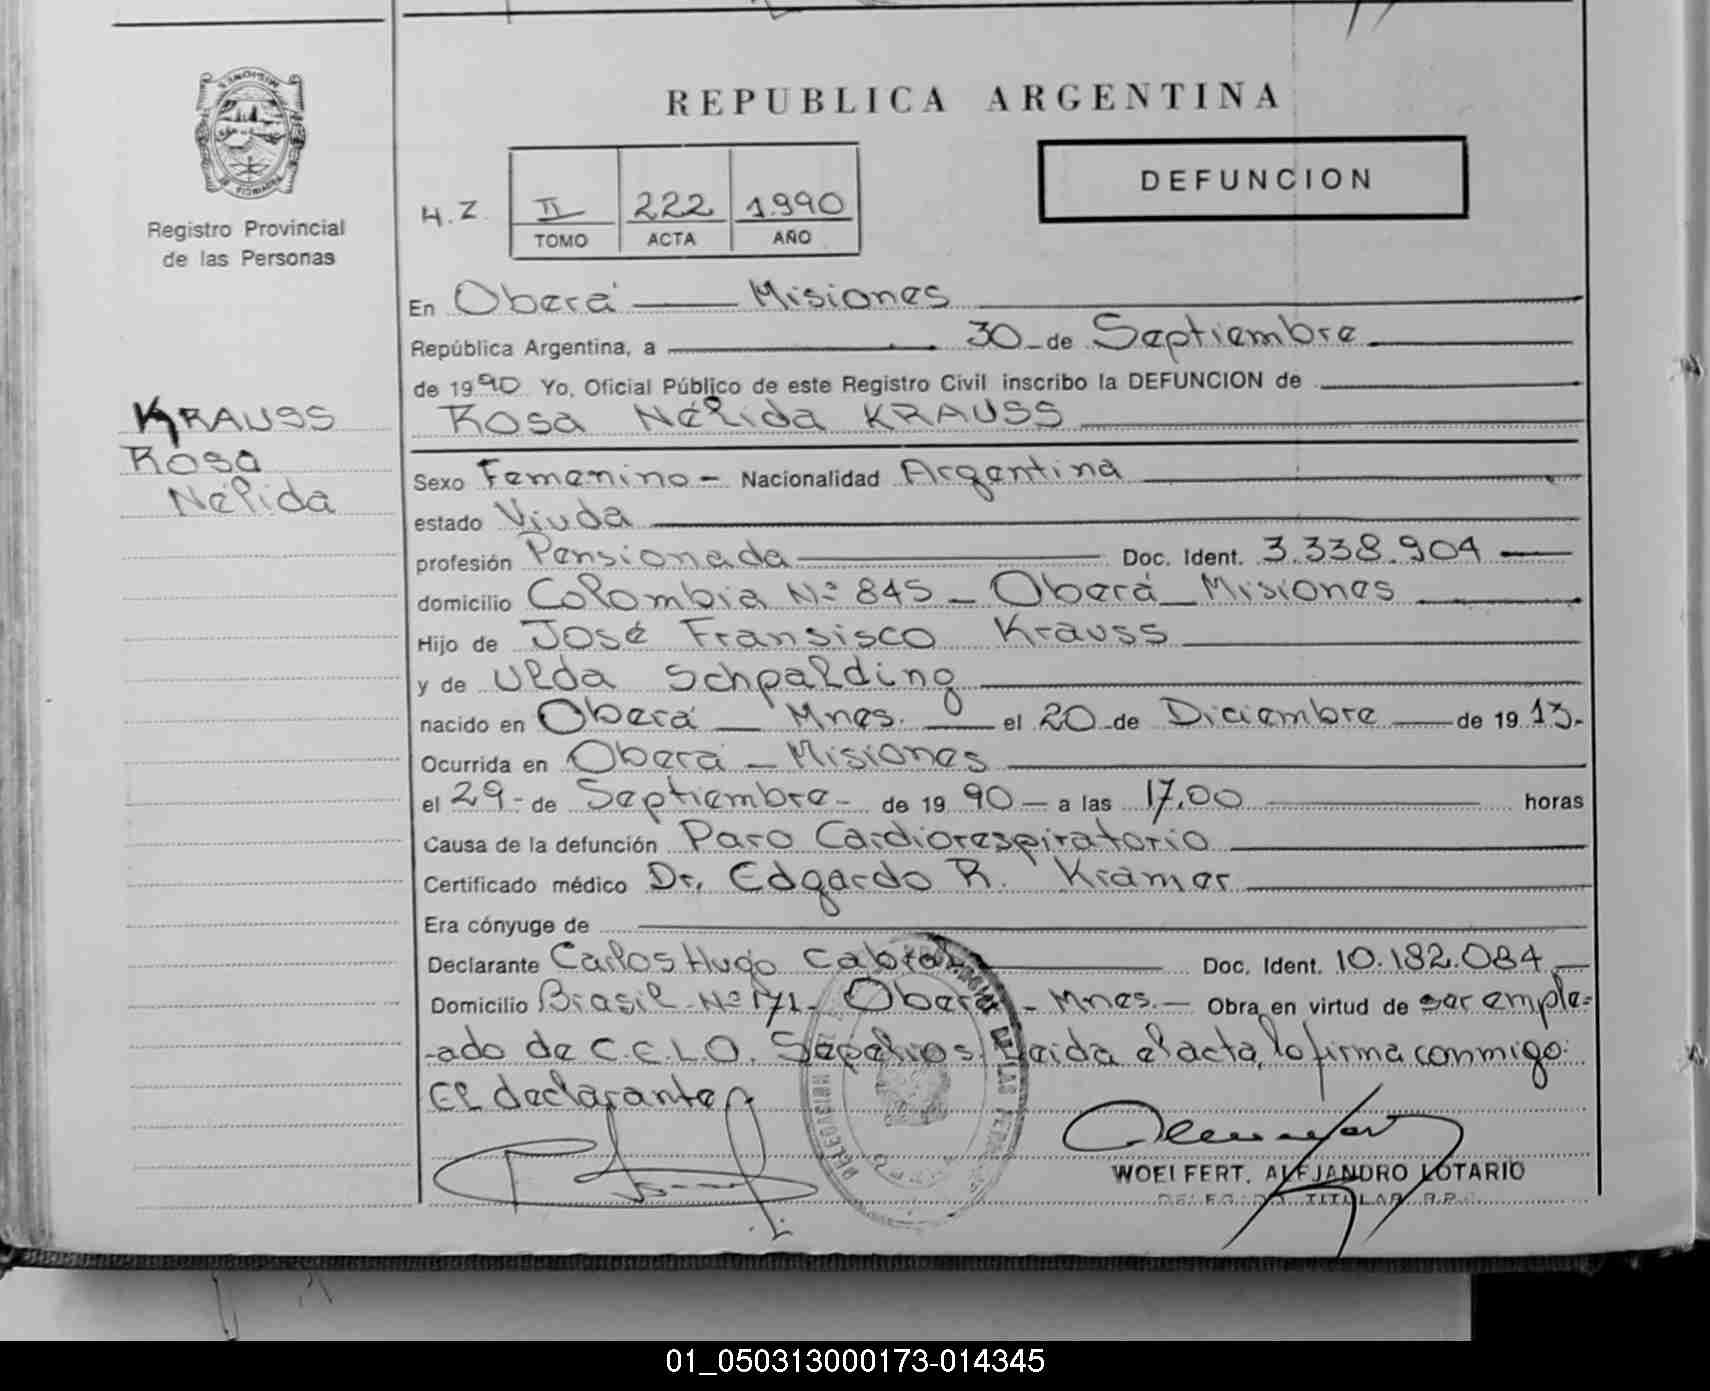 MISIONES
PROVINCIA DE
Registro Provincial
de las Personas
REPUBLICA ARGENTINA
DEFUNCION
H.Z. II 222 1.990
TOMO ACTA AÑO
En Oberá Misiones
República Argentina, a 30 de Septiembre
de 1990 Yo, Oficial Público de este Registro Civil inscribo la DEFUNCION de
KRAUSS
Rosa
Nélida
Rosa Nélida KRAUSS
Sexo Femenino - Nacionalidad Argentina
estado Viuda
profesión Pensionada Doc. Ident. 3.338.904
domicilio Colombia Nº 845 - Oberá - Misiones
Hijo de José Fransisco Krauss
y de Ulda Schpalding
nacido en Oberá - Mnes. el 20 de Diciembre de 1913.
Ocurrida en Oberá - Misiones
el 29 - de Septiembre - de 1990 - a las 17,00 horas
Causa de la defunción Paro Cardiorespiratorio
Certificado médico Dr. Edgardo R. Kramer
Era cónyuge de
Declarante Carlos Hugo Cabral Doc. Ident. 10.182.084
Domicilio Brasil Nº 171 - Oberá - Mnes. - Obra en virtud de ser emple=
-ado de C.E.L.O. Sepelios. Leida el acta, lo firma conmigo:
El declarante
WOELFERT, ALEJANDRO LOTARIO
DELEGADO TITULAR R.P.
01_050313000173-014345